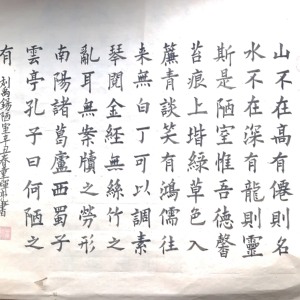 山不在高有僊則名
水不在深有龍則靈
斯是陋室惟吾德馨
苔痕上堦綠草色入
簾青談笑有鴻儒往
来無白丁可以調素
琴閱金經無絲竹之
亂耳無案牘之勞形
南陽諸葛廬西蜀子
雲亭孔子曰何陋之
有
劉禹錫陋室 書